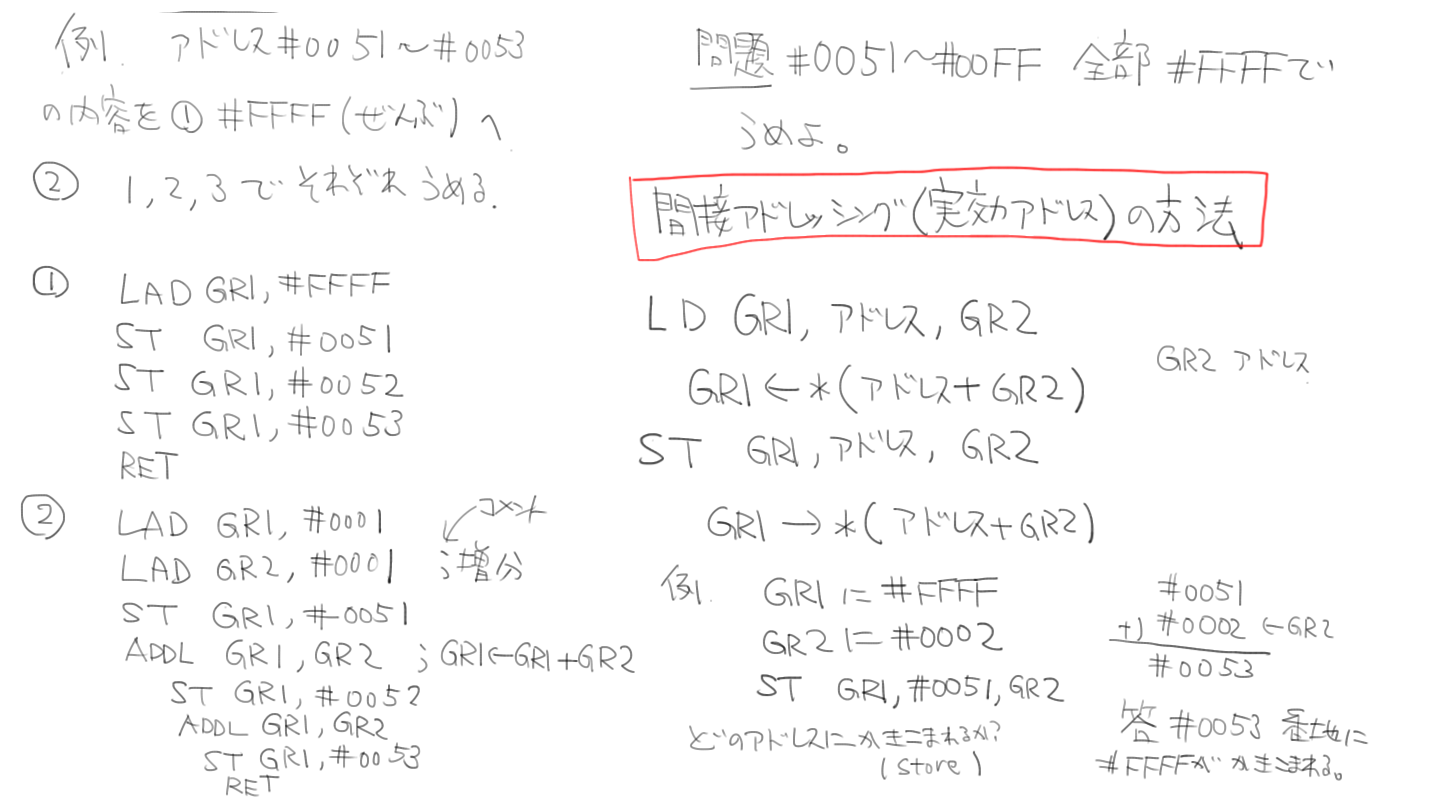 例. アドレス#0051～#0053
の内容を①#FFFF(ぜんぶ)へ
② 1,2,3でそれぞれうめる.
① LAD GR1,#FFFF
ST GR1,#0051
ST GR1,#0052
ST GR1,#0053
RET
② LAD GR1,#0001
コメント
LAD GR2,#0001 ;増分
ST GR1,#0051
ADDL GR1,GR2 ;GR1←GR1+GR2
ST GR1,#0052
ADDL GR1,GR2
ST GR1,#0053
RET
問題 #0051～#00FF 全部 #FFFFで
うめよ。
間接アドレッシング(実効アドレス)の方法
LD GR1,アドレス,GR2
GR2 アドレス
GR1←*(アドレス+GR2)
ST GR1,アドレス,GR2
GR1→*(アドレス+GR2)
例. GR1に#FFFF
GR2に#0002
ST GR1,#0051,GR2
どのアドレスにかきこまれるか?
(store)
#0051
+) #0002 ←GR2
#0053
答 #0053 番地に
#FFFFがかきこまれる。